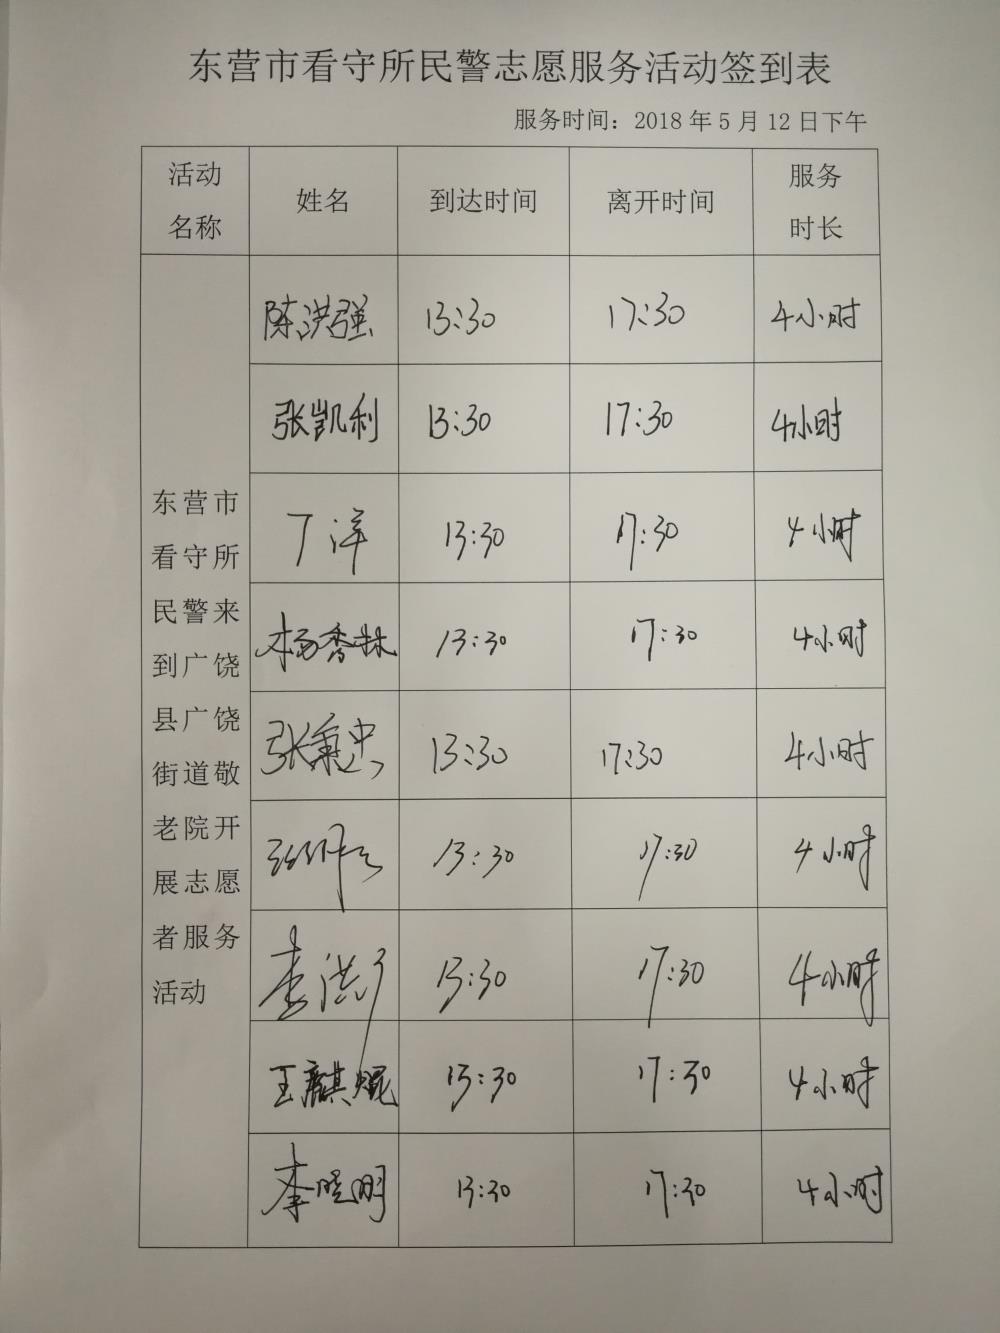 东营市看守所民警志愿服务活动签到表
服务时间：2018年5月12日下午
活动
名称
姓名
到达时间
离开时间
服务
时长
东营市
看守所
民警来
到广饶
县广饶
街道敬
老院开
展志愿
者服务
活动
陈洪强 13:30 17:30 4小时
张凯利 13:30 17:30 4小时
丁洋 13:30 17:30 4小时
杨香林 13:30 17:30 4小时
张秉忠 13:30 17:30 4小时
13:30 17:30 4小时
李洪 13:30 17:30 4小时
王麒焜 13:30 17:30 4小时
李晓明 13:30 17:30 4小时